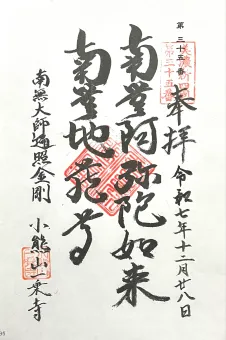 第三十五番
奉拝
令和七年十二月廿八日
南無阿弥陀如来
南無地蔵尊
南無大師遍照金剛
小熊山一乗寺